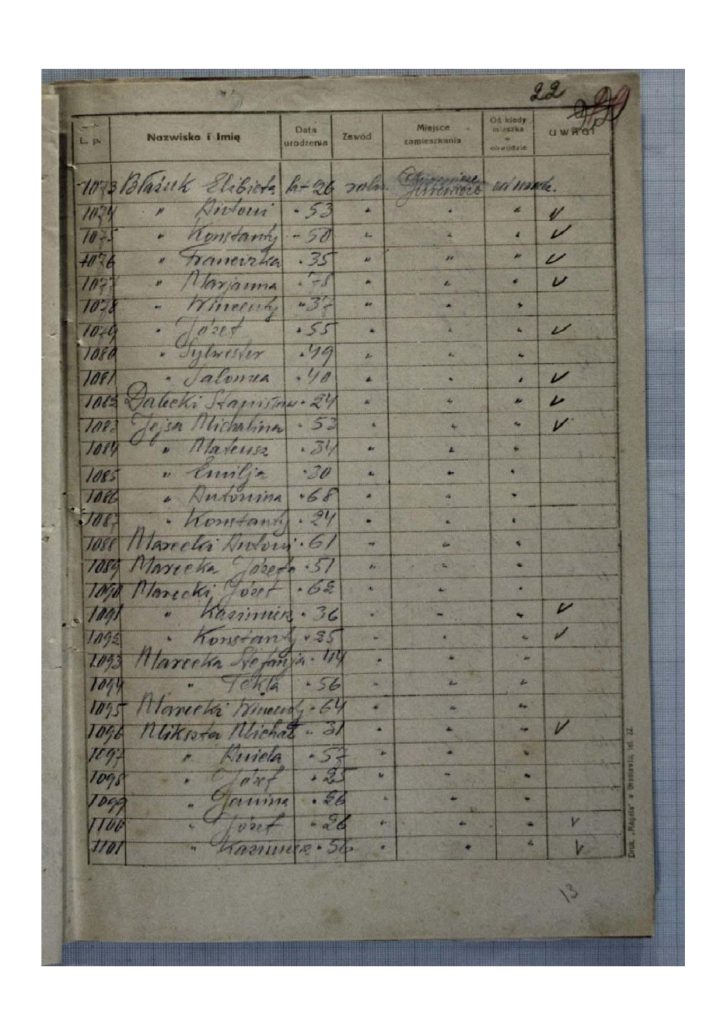 22
L. p. Nazwisko i Imię Data urodzenia Zawód Miejsce zamieszkania Od kiedy mieszka w obwodzie UWAGI
1073 Błażuk Elżbieta l.+26 roln. od urodz.
1074 " Antoni " 53 " " " v
1075 " Konstanty " 50 " " " v
1076 " Franciszka " 35 " " " v
1077 " Marjanna " 78 " " " v
1078 " Wincenty " 37 " " "
1079 " Józef " 55 " " " v
1080 " Sylwester " 49 " " "
1081 " Salomea " 40 " " " v
1082 Dalecki Stanisław " 24 " " " v
1083 Jejsa Michalina " 53 " " " v
1084 " Mateusz " 34 " " "
1085 " Emilja " 30 " " "
1086 " Antonina " 68 " " "
1087 " Konstanty " 24 " " "
1088 Marecki Antoni " 61 " " "
1089 Marecka Józefa " 51 " " "
1090 Marecki Józef " 62 " " "
1091 " Kazimierz " 36 " " " v
1092 " Konstanty " 25 " " " v
1093 Marecka Stefanja " 44 " " "
1094 " Tekla " 56 " " "
1095 Marecki Wincenty " 64 " " "
1096 Mikszta Michał " 31 " " " v
1097 " Aniela " 57 " " "
1098 " Józef " 25 " " "
1099 " Janina " 26 " " "
1100 " Józef " 26 " " " v
1101 " Kazimierz " 56 " " " v
13